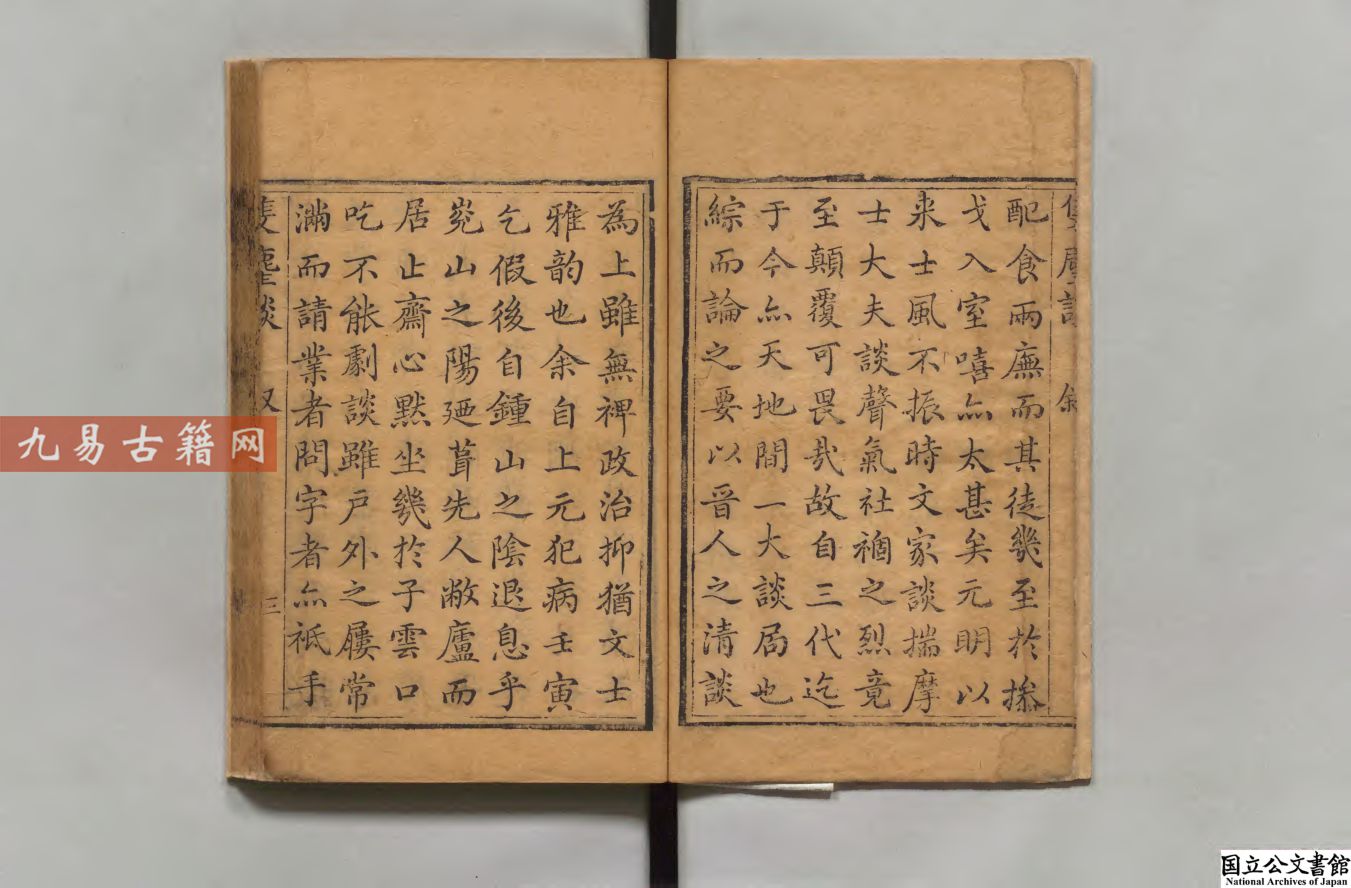 配食兩廡而其徒幾至於摻
戈入室嘻亦太甚矣元明以
来士風不振時文家談揣摩
士大夫談聲氣社禍之烈竟
至顛覆可畏哉故自三代迄
于今亦天地間一大談局也
綜而論之要以晉人之清談
為上雖無裨政治抑猶文士
雅韵也余自上元犯病壬寅
乞假後自鍾山之陰退息乎
嶤山之陽廼葺先人敝廬而
居止齋心默坐幾於子雲口
吃不能劇談雖戶外之屨常
滿而請業者問字者亦袛手
談
三
九易古籍网
国立公文書館
National Archives of Japan